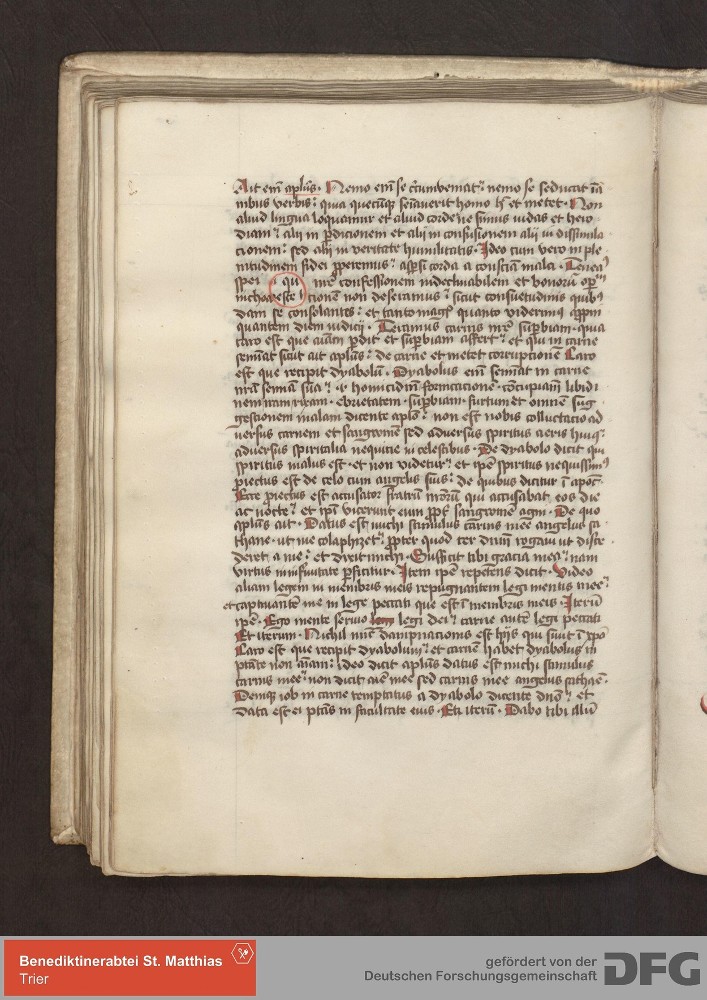 Ait em̄ apl̄us · Nemo em̄ se cir̄cumveniat · nemo se seducat īa
nibus verbis · quia quecūq̄ seīaverit homo h̄ et metet · Non
aliud lingua loquamur et aliud corde ne simus iudas et hero
diani · alii in p̄dicionem et alii in confusionem alii in dissimila
cionem · sed alii in veritate humilitatis · Ideo cum vero in ple
nitudinem fidei pperemus · asp̄si corda a consciā mala · Tenea
spei · qui nr̄e confessionem indeclinabilem et bonorū op
inchoar este cionēm non deseramus · sicut consuetudinis quib
dam se consolantes · et tanto mag̉ quanto viderim̉ appp̄in
quantem diem iudicii · Teramus carnis nr̄e sup̄biam · quia
caro est que aīam p̄dit et sup̄biam affert · et qui in carne
semīat sicut ait apl̄us · de carne et metet corrupcionē Caro
est que recipit dyabolū · Dyabolus em̄ semīat in carne
nr̄a semīa sua · · homicidiū fornicacionē · ꝯcupiam̄ libidi
nem iram rixam · ebrietatem · sup̄biam · furtum et omnē sug
gestionem malam dicente apl̄o · non est nobis colluctacio ad
versus carnem et sanguinē sed adversus spiritus aeris huiq̉
adversus spiritalia nequicie in celestibus · De dyabolo dicit qui
spiritus malus est · et non videtur · et ip̄e spiritus nequissim̉
proiectus est de celo cum angelis suis · de quibus dicitur ī apoc̄
Ecce proiectus est accusator fratrū nr̄orū qui accusabat eos die
ac nocte · et ip̄i vicerunt eum ppt̄ sanguinē agni · De quo
apl̄us ait · Datus est michi stimulus carnis mee angelus sa
thane · ut me colaphizet · propter quod ter dnū rogavi ut disce
deret a me · et dixit michi · Sufficit tibi gracia mea · nam
virtus in infirmitate p̄ficitur · Item ip̄e repetens dicit · Video
aliam legem in membris meis repugnantem legi mentis mee
et captivantē me in lege peccati que est ī membris meis · Iterū
ip̄e · Ego mente servio legi dei · carne autē legi peccati
Et iterum · Nichil nūc dampnacionis est hijs qui sunt ī xp̄o
Caro est que recipit dyabolum · et carnē habet dyabolus in
ptāte non aīam · Ideo dicit apl̄us datus est michi stimulus
carnis mee · non dicit aīe mee sed carnis mee angelus sathāe ·
Deniq̄ iob in carne temptatus a dyabolo dicente dnō · et
data est ei ptās in facultate eius · Et iterū · Dabo tibi illū
Benediktinerabtei St. Matthias
Trier
gefördert von der
Deutschen Forschungsgemeinschaft DFG